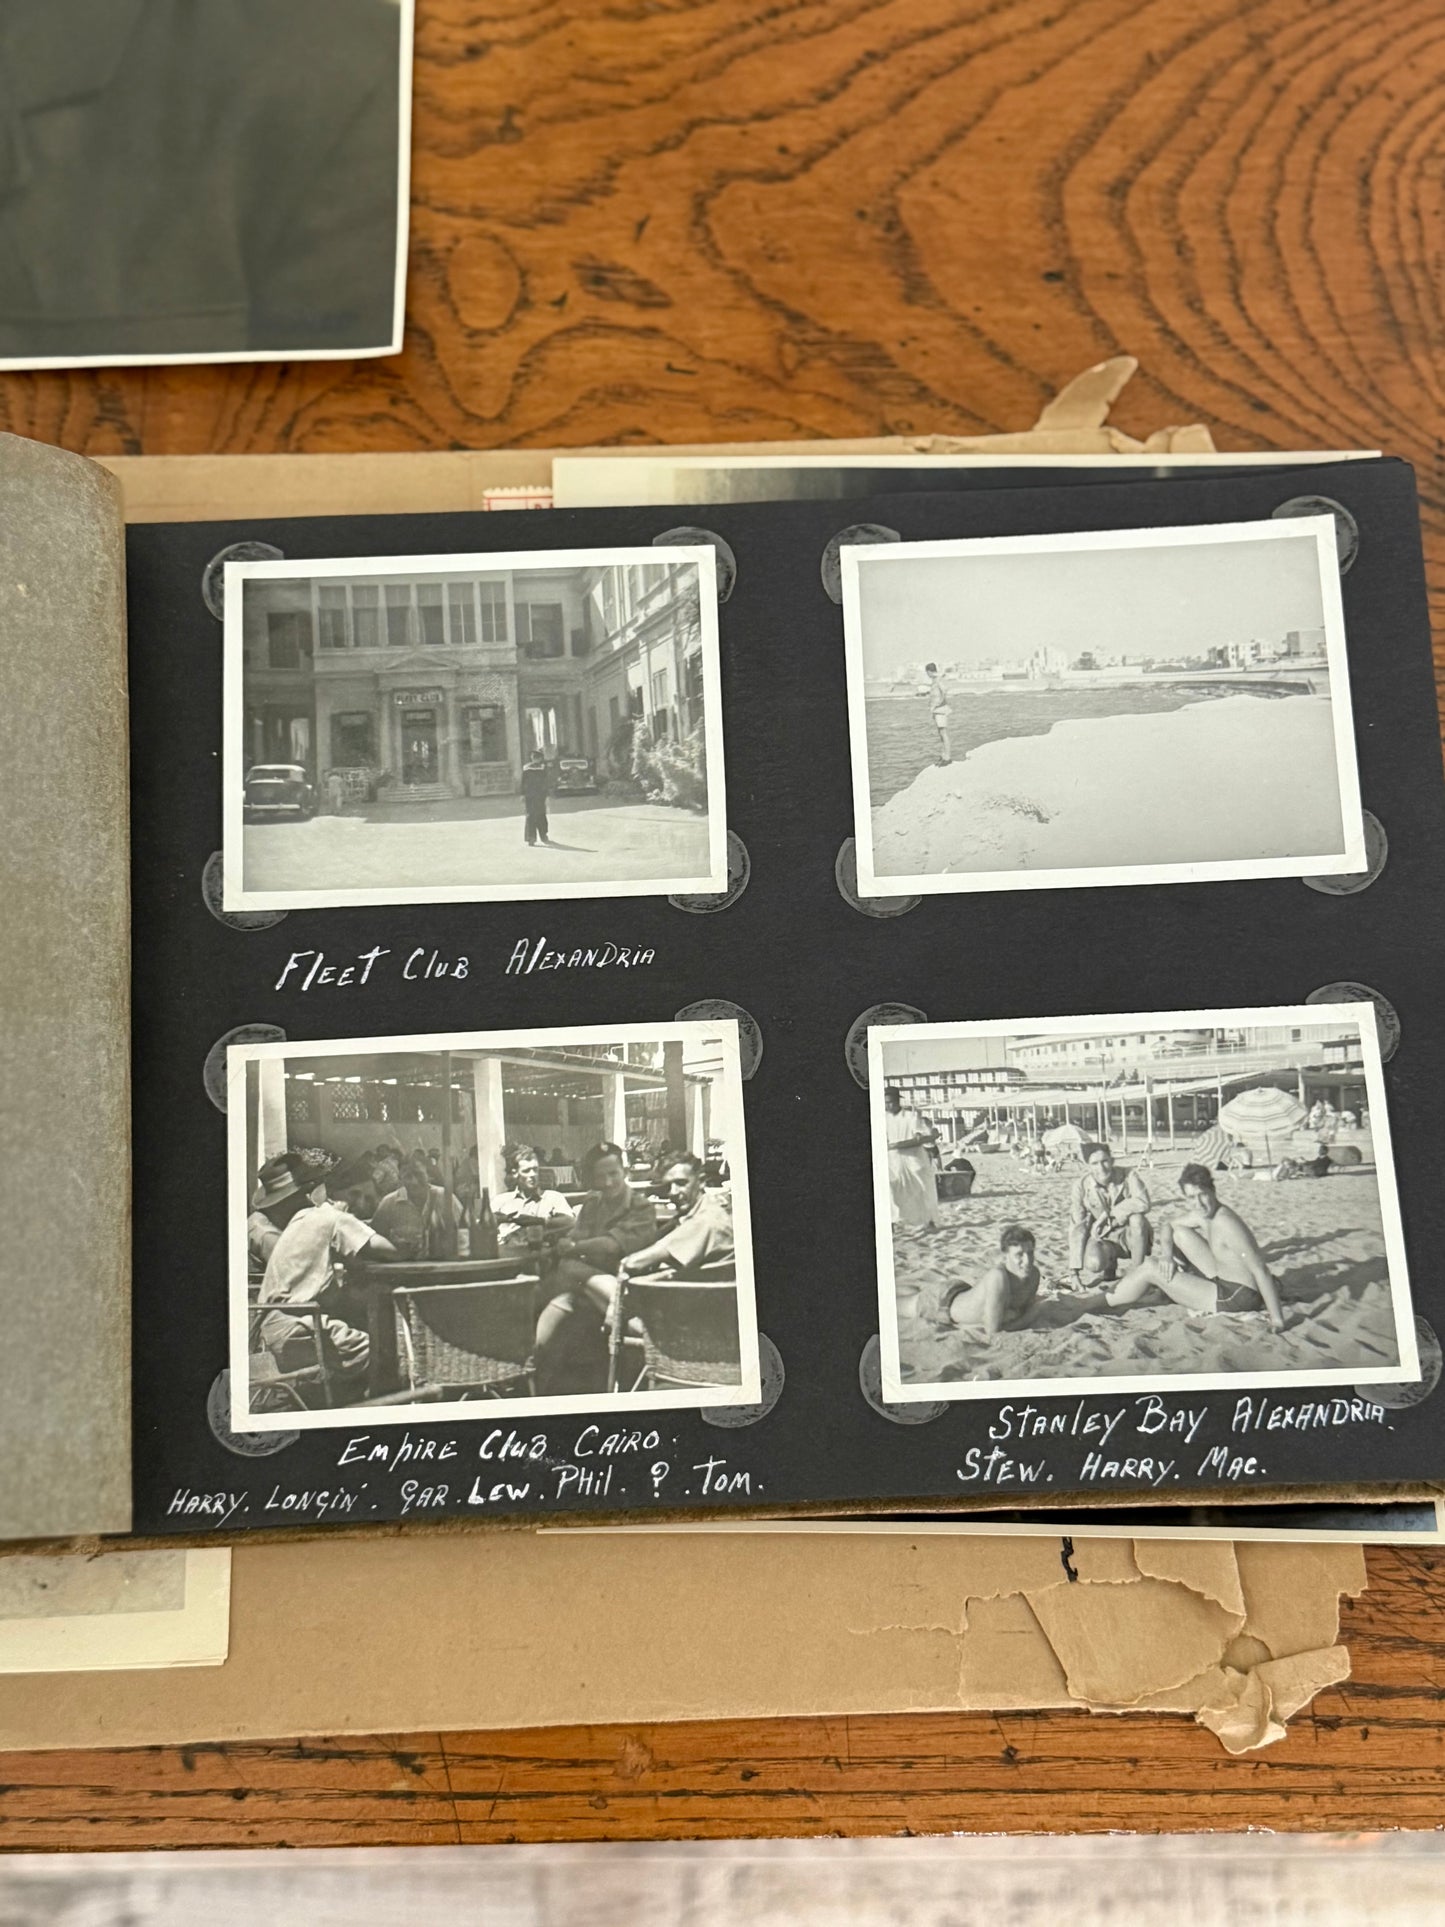 FLEET CLUB
Fleet Club Alexandria
Empire Club Cairo.
Harry. Longin'. Gar. Lew. Phil. ? . Tom.
Stanley Bay Alexandria.
Stew. Harry. Mac.